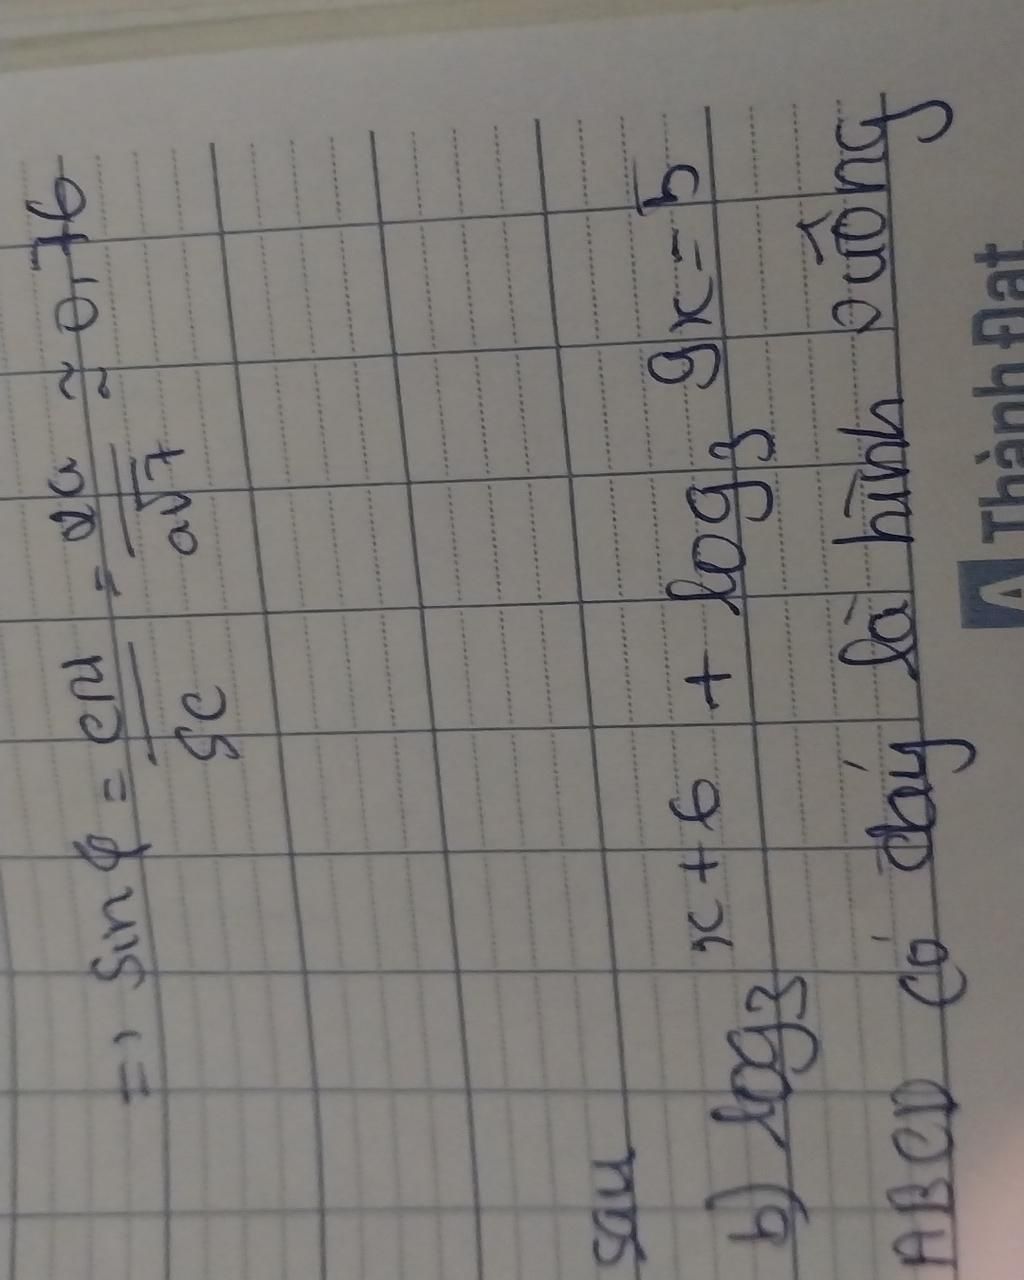 => sin φ = CM/SC = 2a/a√7 ≈ 0,76
sau
b) log₃ x + 6 + log₃ 9x = 5
ABCD có đáy là hình vuông
Thành Đạt